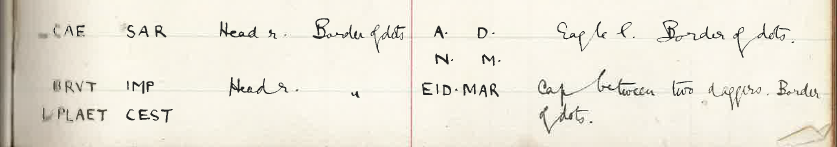 CAE SAR Head r. Border of dots A. D. Eagle l. Border of dots.
N. M.
BRVT IMP Head r. " EID·MAR Cap between two daggers. Border
L PLAET CEST of dots.